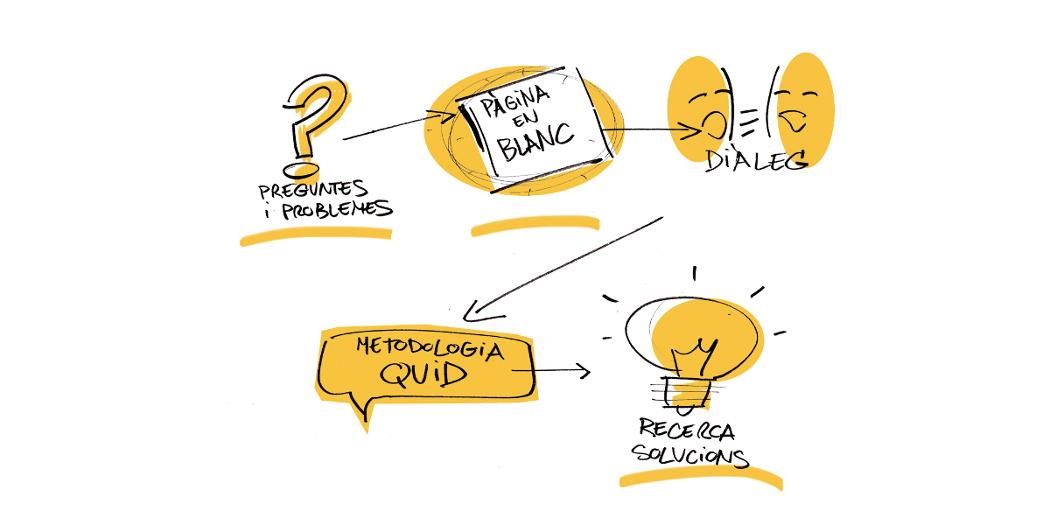 PREGUNTES
i PROBLEMES
PÀGiNA
EN
BLANC
DiÀLEG
METODOLOGiA
QUiD
RECERCA
SOLUCiONS